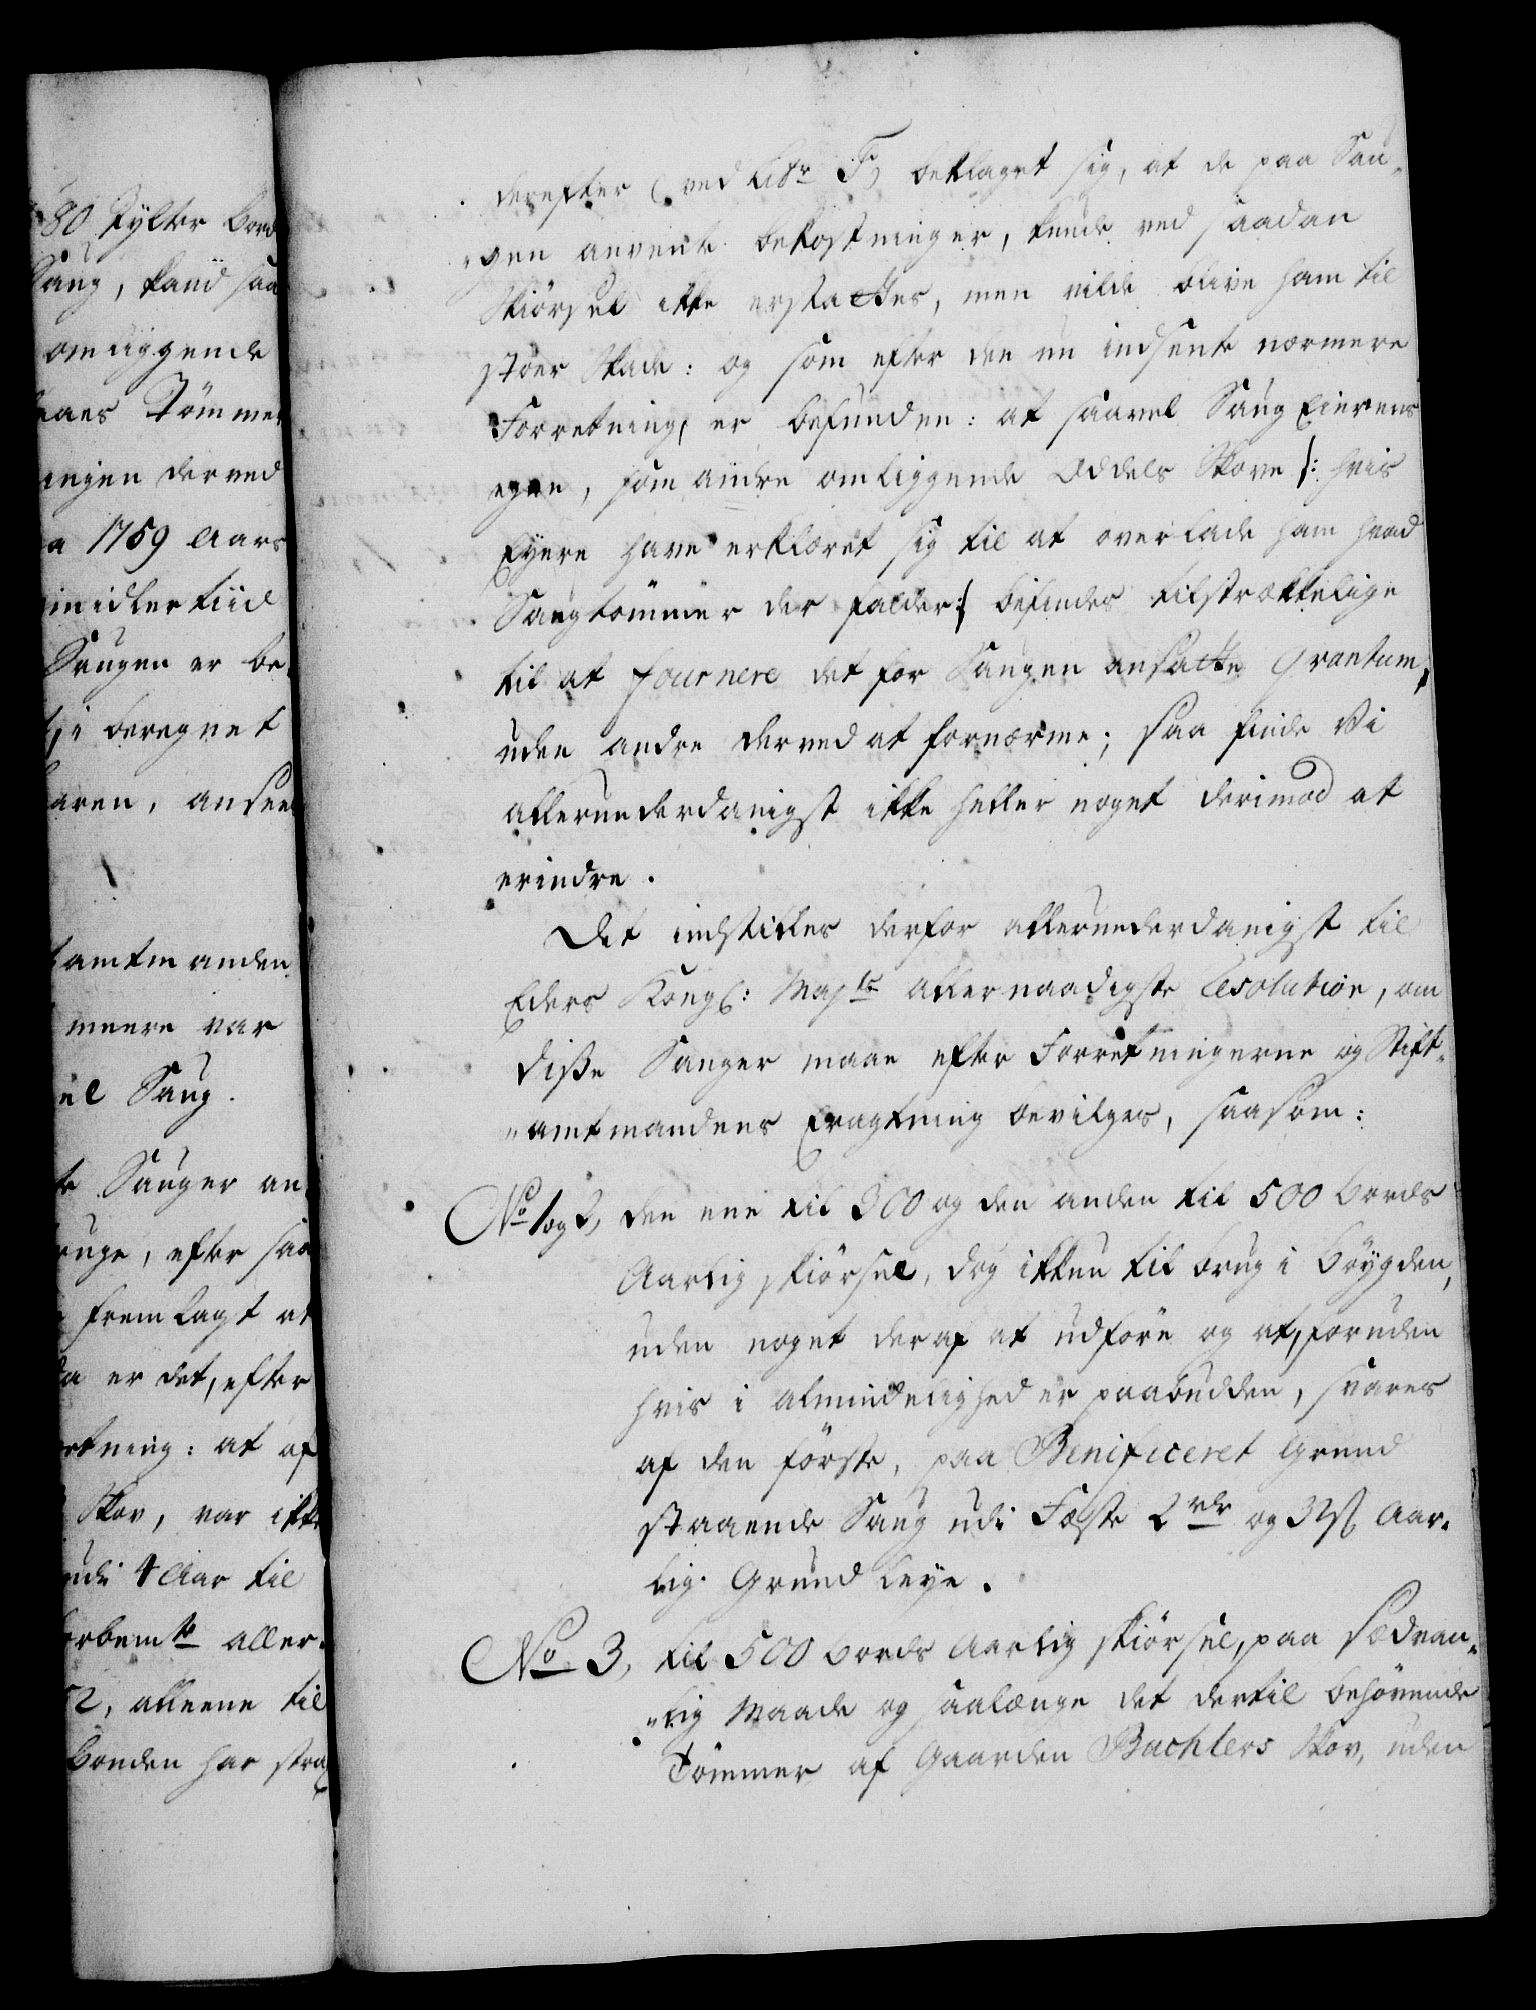 80 Tylter bord
Saug, kand saa
omliggende
Tömmer
ingen derved
a 1759 Aars
imidlertiid
Saugen er be-
i beregnet
aren, ansee
tamtmanden
meere var
el Saug.
te Sauger an
ruge, efter saa
fremlagt at
da er det, efter
retning: at af
Skov, var ikke
udi 4 Aar til
forbemte aller-
52, alleene til
Bonden har strax
derefter (ved Litr F) beklaget sig, at de paa Sau-
"gen anvente bekostninger, kunde ved saadan
Skiörsel ikke erstattes, men vilde blive ham til
stoer Skade: og som efter den nu indsente nærmere
Forretning, er befunden: at saavel Saug Eierens
egen, som andre omliggende Oddels Skove /: hvis
Eyere have erklæret sig til at overlade ham hvad
Saugtömmer der falder :/ befindes tilstrækkelige
til at fournere det for Saugen ansatte Qvantum,
uden andre derved at fornærme; saa finde Vi
allerunderdanigst ikke heller noget derimod at
erindre.
Det indstilles derfor allerunderdanigst til
Eders Kongl: Majts allernaadigste Resolution, om
disse Sauger maae efter Forretningerne og Stift-
"amtmandens Eragtning bevilges, saasom:
No 1 og 2, den ene til 300 og den anden til 500 bords
Aarlig skiörsel, dog ikkun til brug i Böygden,
uden noget deraf at udföre og at, foruden
hvis i almindelighed er paabudden, svares
af den förste, paa Benificeret Grund
staaende Saug udi Fæste 2 rdr og 32 s Aar-
lig Grund Leye.
No 3, til 500 bords Aarlig skiörsel, paa sædvan-
"lig Maade og saalænge det dertil behövende
Tömmer af Gaarden Bachlers Skov, uden